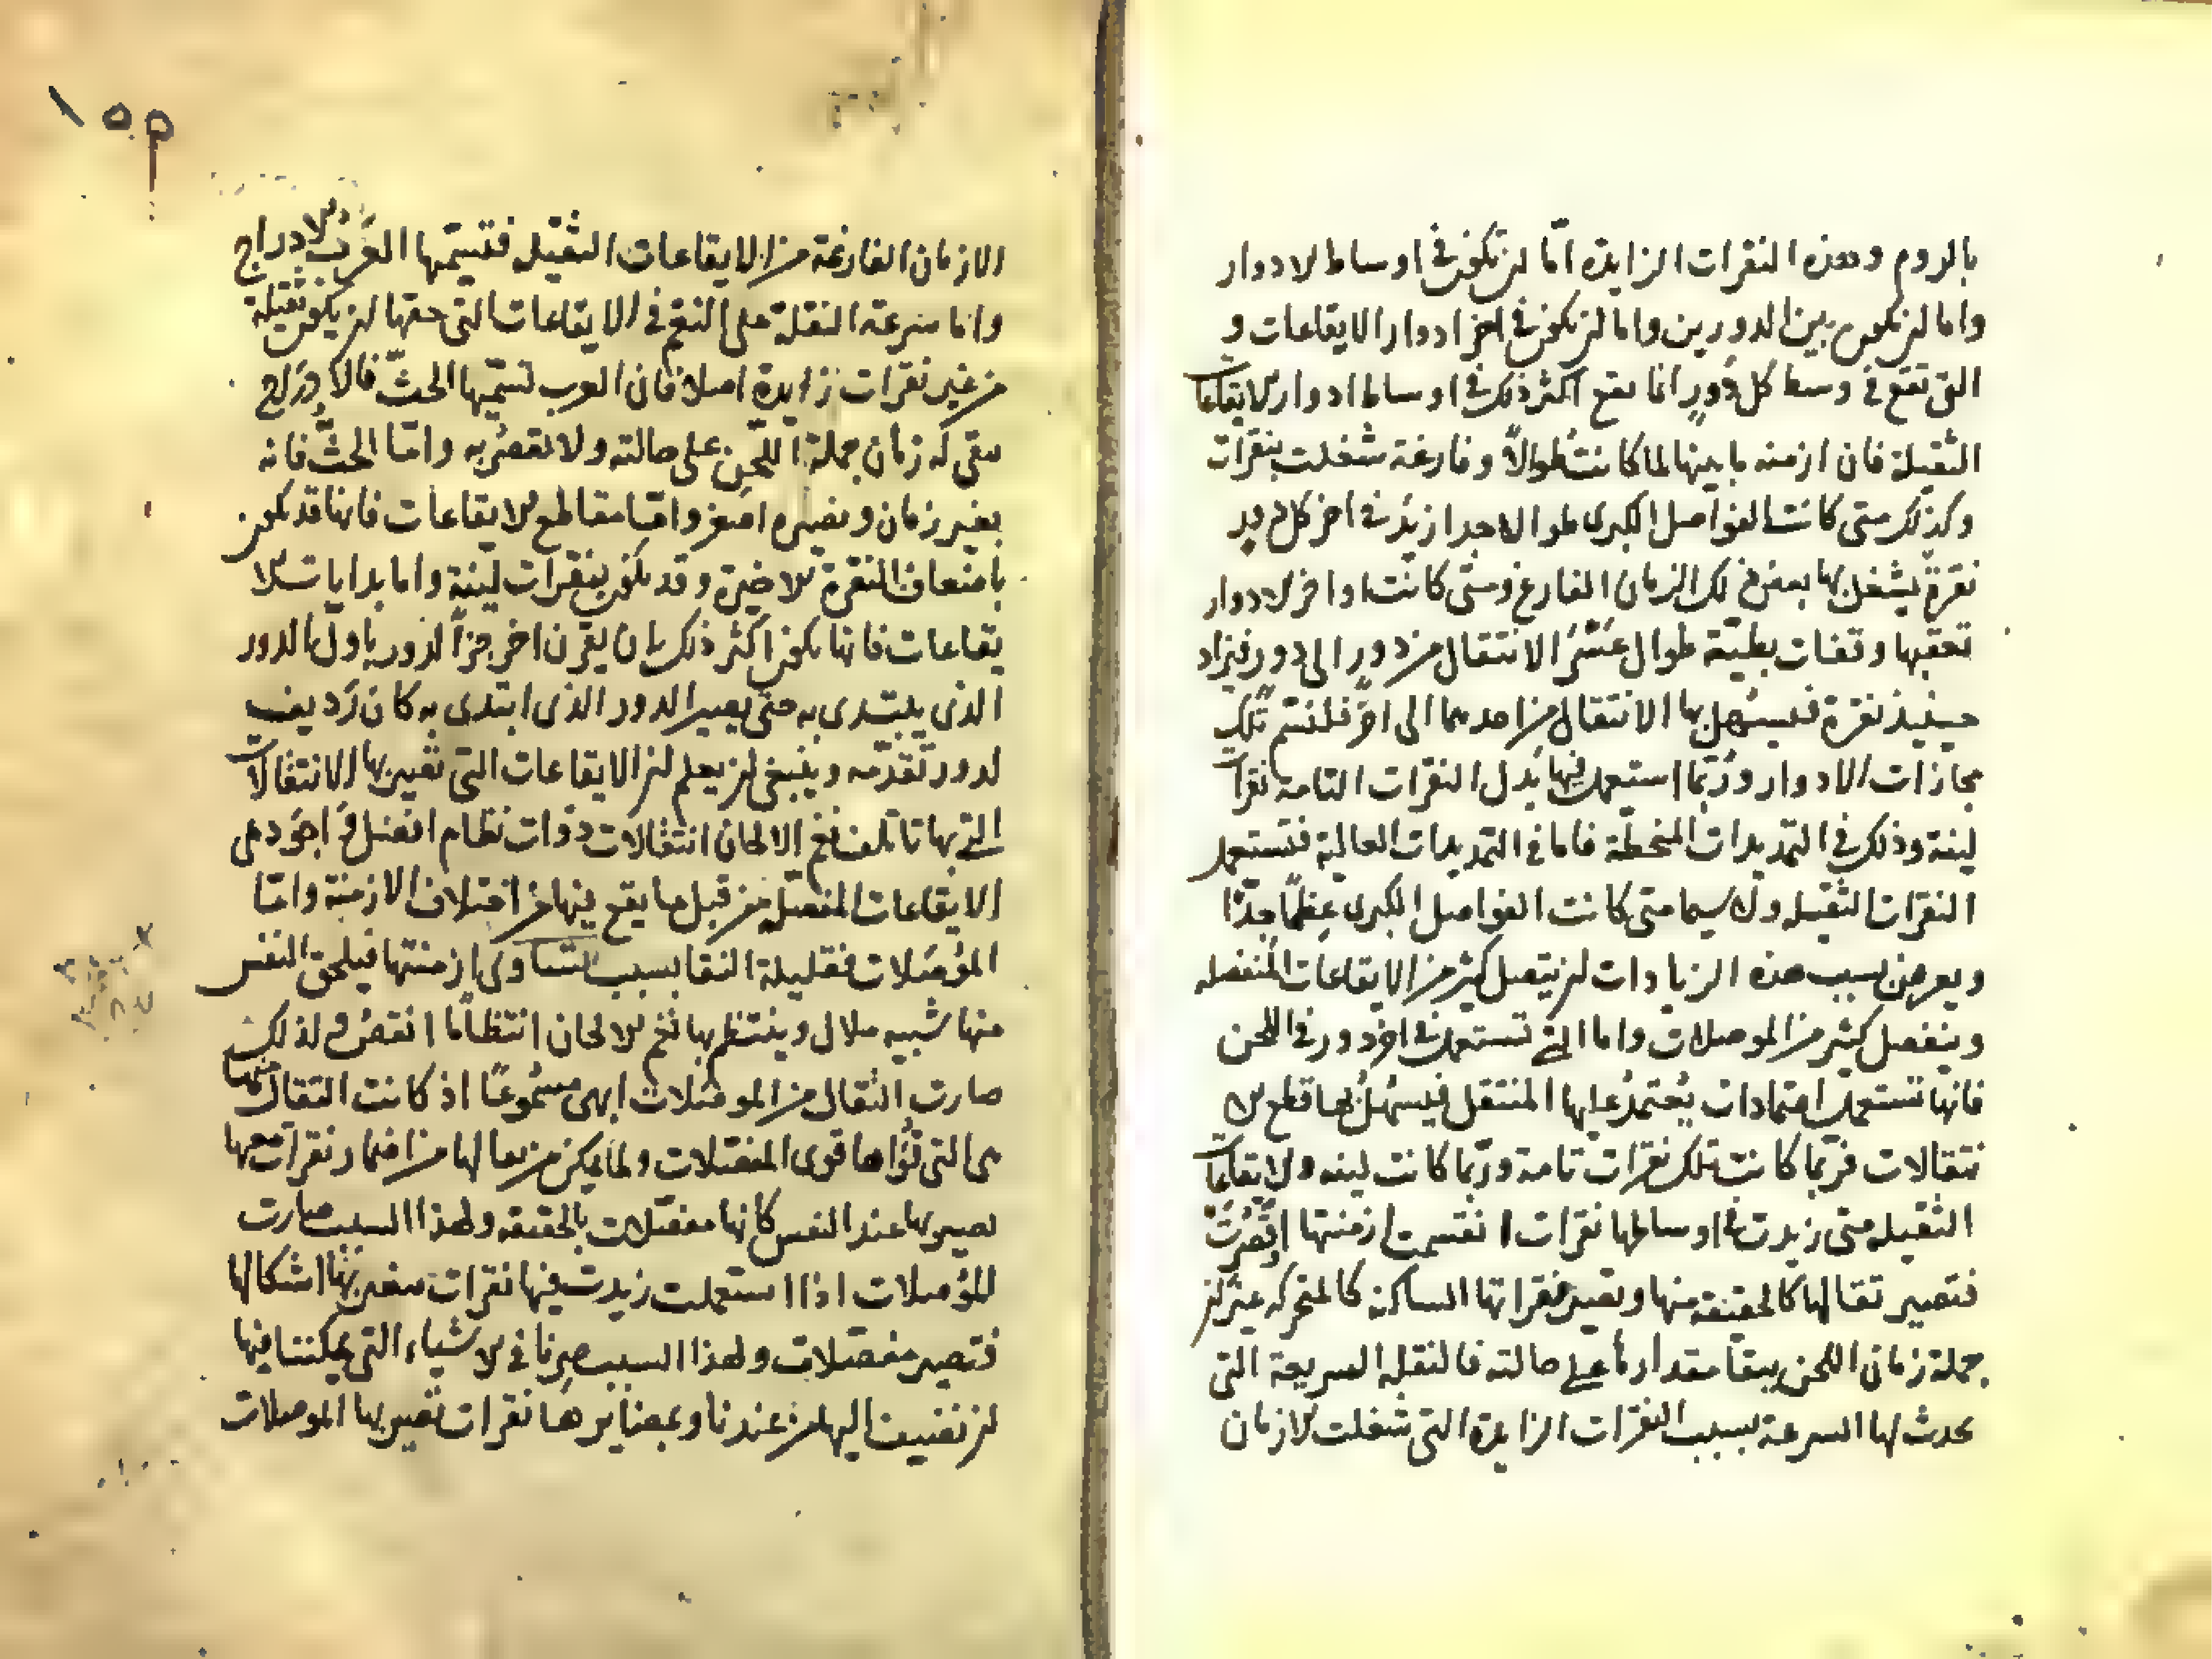 بالروم وهذه النقرات الزايدة امّا ان تكون في اوساط الادوار
واما ان تكون بين الدورين واما ان تكون في اخر ادوار الايقاعات و
التي تقع في وسط كل دور انما يقع اكثر ذلك في اوساط ادوار الايقاعات
الثقيلة فان ازمنه ما بينها لما كانت طوالاً وفارغة شغلت بنقرات
وكذلك متى كانت الفواصل الكبرى طوالا جدا زيد في اخر كل دور
نقرة يشغل بها بعض ذلك الزمان الفارغ ومتى كانت اواخر الادوار
تعقبها وقفات بطيّة طوال عَسُرَ الانتقال من دور الى دور فيزاد
حينيذ نقرة فيسهل بها الانتقال من احدهما الى اخر فلنسم تلك
مجازات الادوار وربّما استعمل فيها بَدل النقرات التامة نقرات
لينة وذلك في التمديدات المنحطّة فاما في التمديدات العالية فتستعمل
النقرات الثقيله ولا سيما متى كانت الفواصل الكبرى عظمًا جدّا
ويعرض بسبب هذه الزيادات ان يتصل كثير من الايقاعات المنفصله
وينفصل كثير من الموصلات واما التي تستعمل في اخر دور في اللحن
فانها تستعمل اعتمادات يُعتمدُ عليها المنتقل فيسهُل بها قطع الا
نتقالات فربّما كانت تلك نقرات تامة وربّما كانت لينه والايقاعات
الثقيله متى زيدت في اوساطها نقرات انقسمت ازمنتها وقصُرت
فتصير ثقالها كالحقيقه منها وتصير نقراتها الساكنه كالمتحركه غير ان
جملة زمان اللحن يبقا مقداره على حالته فالنقله السريعة التي
يحدث لها السرعة بسبب النقرات الزايدة التي شغلت الازمان
١٥٢
الازمان الفارغة من الايقاعات الثقيل فتسمّيها العرب الادراج
وانا سرعة النقلة على النغم في الايقاعات التي حقها ان يكون ثقيلة
من غير نقرات زايدة اصلا فان العرب تسمّيها الحثّ فالادراج
يبقى له زمان جملة اللحن على حالته ولا تقصر به وامّا الحثّ فانه
يغير زمان ويصيره اصغر وامّا مقاطع الايقاعات فانها قد يكون
باضعاف النقرة الاخيرة وقد يكون بنقرات لينة واما بدايات الا
يقاعات فانها يكون اكثر ذلك بان يقرن اخر جزأ الدور باول الدور
الذي يبتدى به حتى يصير الدور الذي ابتدى به كان رديف
لدور تقدّمه وينبغي ان يعلم ان الايقاعات التي تصير بها الانتقالات
التي بها تاتلف نغم الالحان انتقالات ذوات نظام افضل و اجود هي
الايقاعات المنفصله من قبل ما يقع فيها من اختلاف الازمنة وامّا
الموُصَلات فقليلة النقا بسبب تساوي ازمنتها فيلحق النفس
منها شبيه ملال وينتظم بها نغم الالحان انتظاما انقص ولذلك
صارت الثقال من الموصلات ابهى مسموعًا اذ كانت الثقال منها
هي التي قُواها قوى المنفصلات ولما يمكن من ثقالها من اضمار نقرات معها
تصير بها عند النفس كانها مفصّلات بالحقيقه ولهذا السبب صارت
الموُصلات اذا استعملت زيدت فيها نقرات اشكالها
فتصير مفصّلات ولهذا السبب صِرنا في الاشياء التي يمكننا فيها
ان نضيف اليها من عندنا وبضمايرها نقرات تصير بها الموصلات